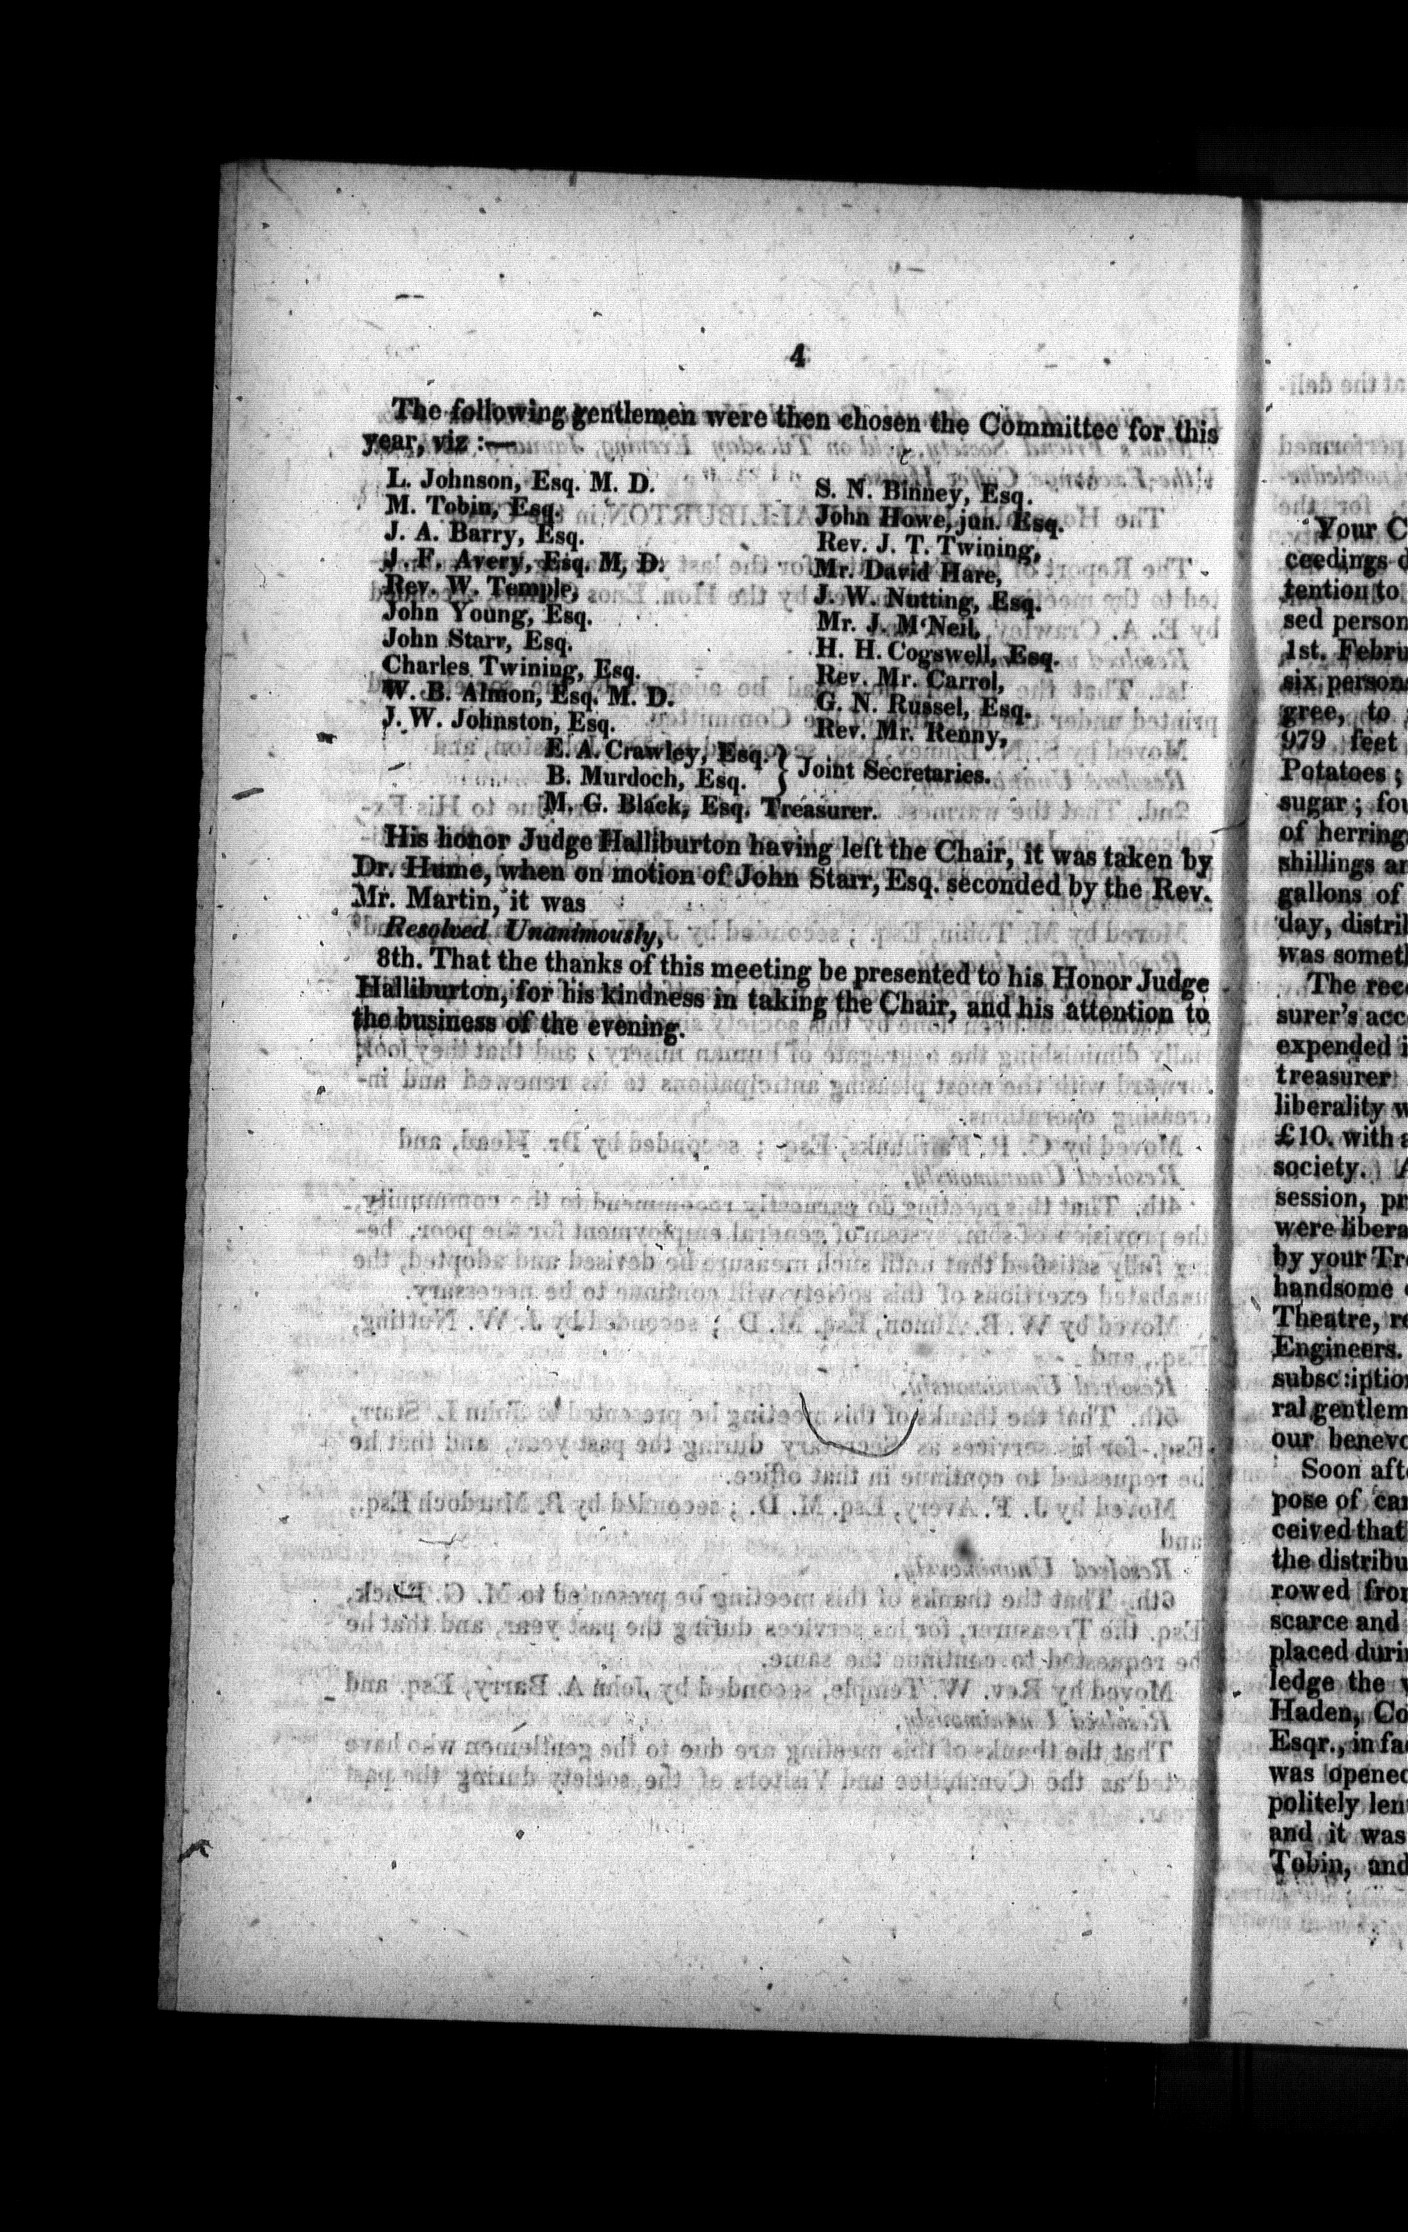 4
The following gentlemen were then chosen the Committee for this
year, viz :—
L. Johnson, Esq. M. D.
M. Tobin, Esq.
J. A. Barry, Esq.
J. F. Avery, Esq. M, D.
Rev. W. Temple,
John Young, Esq.
John Starr, Esq.
Charles Twining, Esq.
W. B. Almon, Esq. M. D.
J. W. Johnston, Esq.
S. N. Binney, Esq.
John Howe, jun. Esq.
Rev. J. T. Twining,
Mr. David Hare,
J. W. Nutting, Esq.
Mr. J. M'Neil,
H. H. Cogswell, Esq.
Rev. Mr. Carrol,
G. N. Russel, Esq.
Rev. Mr. Renny,
E. A. Crawley, Esq. } Joint Secretaries.
B. Murdoch, Esq.
M. G. Black, Esq. Treasurer.
His honor Judge Halliburton having left the Chair, it was taken by
Dr. Hume, when on motion of John Starr, Esq. seconded by the Rev.
Mr. Martin, it was
Resolved Unanimously,
8th. That the thanks of this meeting be presented to his Honor Judge
Halliburton, for his kindness in taking the Chair, and his attention to
the business of the evening.
Your C
ceedings d
tention to
sed person
1st. Febru
six persons
gree, to
979 feet
Potatoes ;
sugar ; fou
of herring
shillings an
gallons of
day, distrib
was someth
The rece
surer's acc
expended i
treasurer
liberality w
£10. with a
society. A
session, pr
were libera
by your Tre
handsome
Theatre, re
Engineers.
subscription
ral gentlem
our benevo
Soon afte
pose of car
ceived that
the distribu
rowed fror
scarce and
placed durin
ledge the v
Haden, Co
Esqr., in fa
was opened
politely len
and it was
Tobin, and